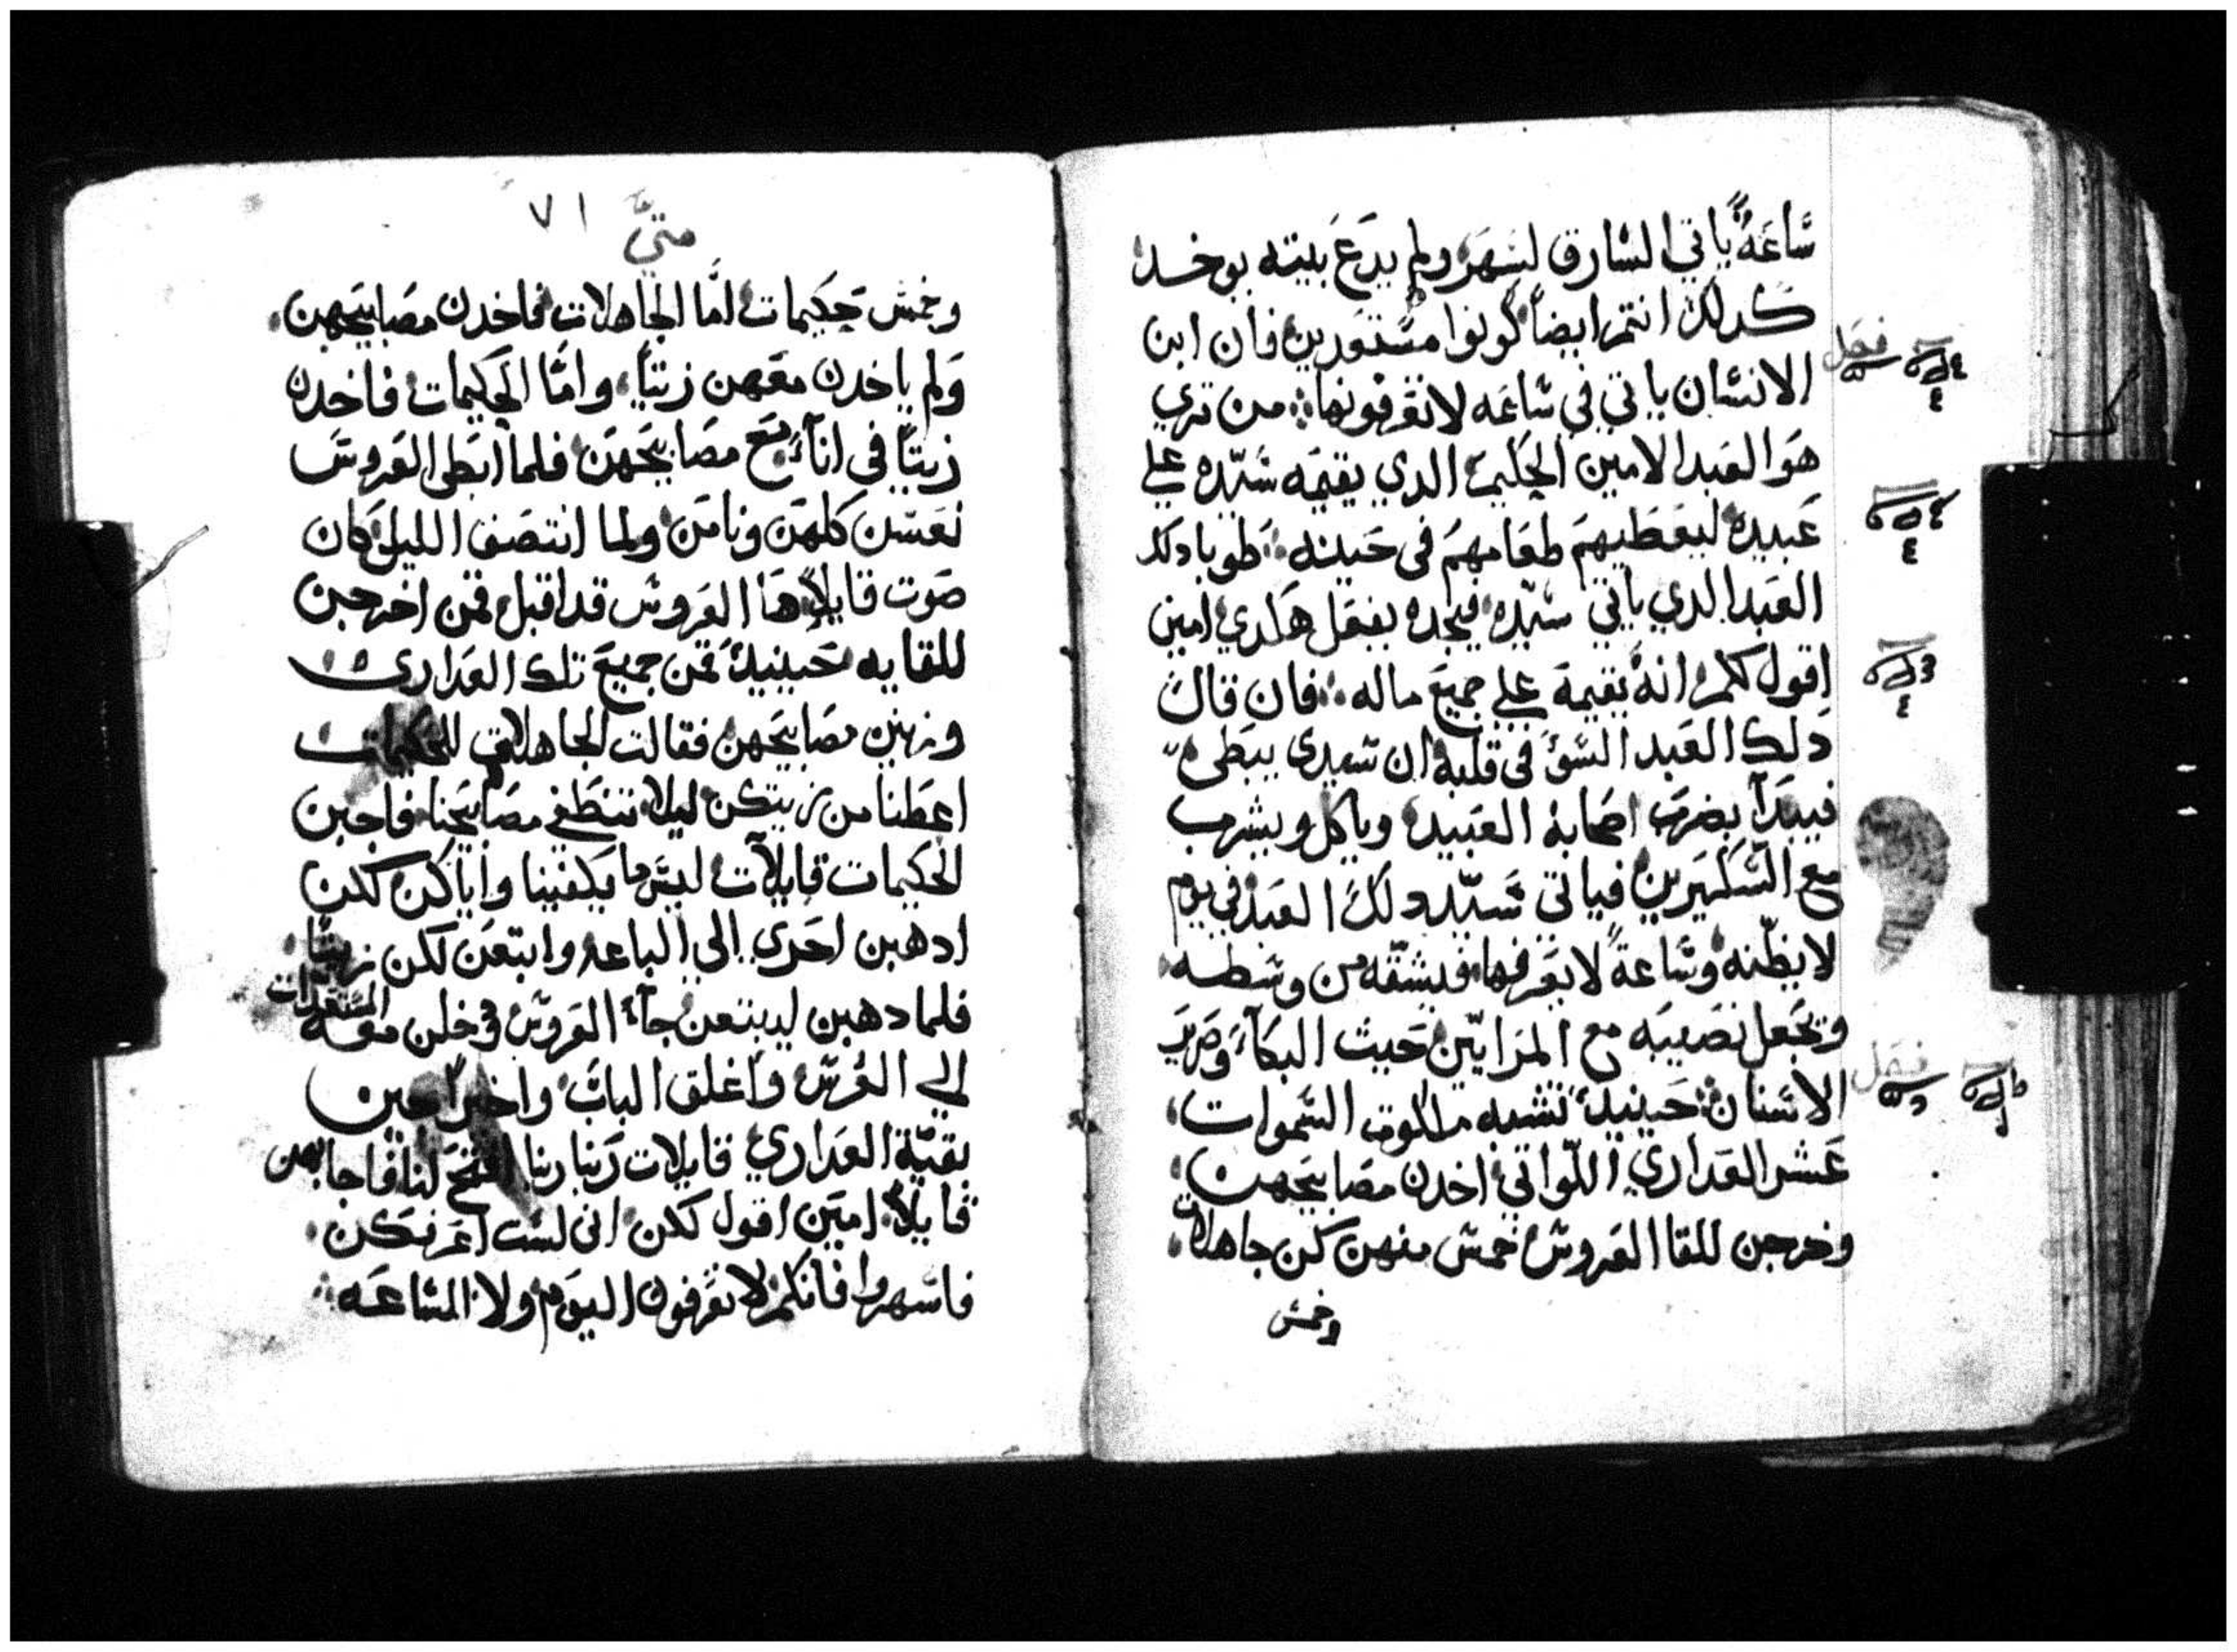 ساعةً ياتي السارق لسَهَر ولم يدع بيته يوخد
كدلك انتم ايضاً كونوا مستعدين فان ابن
الانسان ياتي في ساعه لا تعرفونها من تري
هو العبد الامين الحكيم الدي يقيمه سيّده علي
عبيده ليعطيهم طعامهم في حينه طوبا دلك
العبد الدي ياتي سيّده فيجده يفعل هكدي امين
اقول لكم انهُ يقيمهُ علي جميع ماله فان قال
دلك العبد السوَ في قلبه ان سيدي يبطي
فيبدآ بضرب اصحابه العبيد وياكل ويشرب
مع السكيرين فياتي سيّد دلك العبد في يوم
لا يظنّه وساعةً لا يعرفها فيشقّه من وسطه
ويجعل نصيبه مع المرايّين حيث البكآء وصرير
الاسنان حينيد تشبه ملكوت السموات
عشر العداري اللّواتي اخدن مصابيحهن
وخرجن للقا العروس خمس منهن كن جاهلات
وخمس
فصل
فصل
متيَّ ٧١
وخمس حكيمات امَّا الجاهلات فاخدن مصابيحهن
ولم ياخدن معهن زيتاً وامَّا الحكيمات فاخدن
زيتاً في انآء مع مصابيحهن فلما ابطي العروس
نعسن كلهن ونامن ولما انتصف الليل كان
صوت قايلاً ها العروس قد اقبل قمن اخرجن
للقايه حينيد قمن جميع تلك العداري
وزينن مصابيحهن فقالت الجاهلات للحكيمات
اعطنا من زيتكن ليلا تنطفي مصابيحنا فاجبن
الحكيمات قايلآت ليس ما يكفينا واياكن لكن
ادهبن احري الي الباعه وابتعن لكن زيتاً
فلما دهبن ليبتعن جآء العروس ودخلن معه المستعدات
الي العرس واغلق الباب واخيراً جين
بقيّة العداري قايلات ربنا ربنا افتح لنا فاجابهن
قايلاً امين اقول لكن اني لست اعرفكن
فاسهروا فانكم لا تعرفون اليوم ولا الساعه